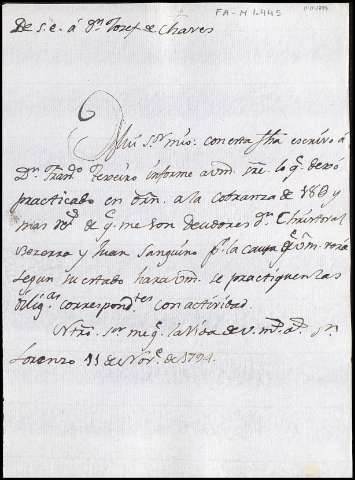 FA-M L.445
De S.E. á Dn Josef de Chaves
Mui Sr. mio: con esta fha escrivo á
Dn Franco Terreiro informe a vm. de lo q. dexó
practicado en orn. a la cobranza de 180
mas de q. me son Deudores Dn Christoval
Becerro y Juan Sanguino la causa vm.
segun su estado hara vm. se practiquen las
Dilig.as correspond.tes con actividad.
Ntro. Sor me g. la vida de v. m.s a.s Sn
Lorenzo 11 de Nov.e de 1794.